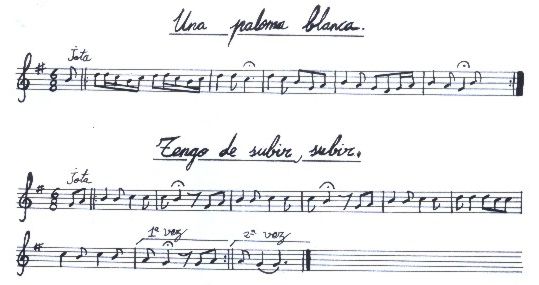 Una paloma blanca.
Jota
6
8
Tengo de subir, subir.
Jota
6
8
1ª vez 2ª vez